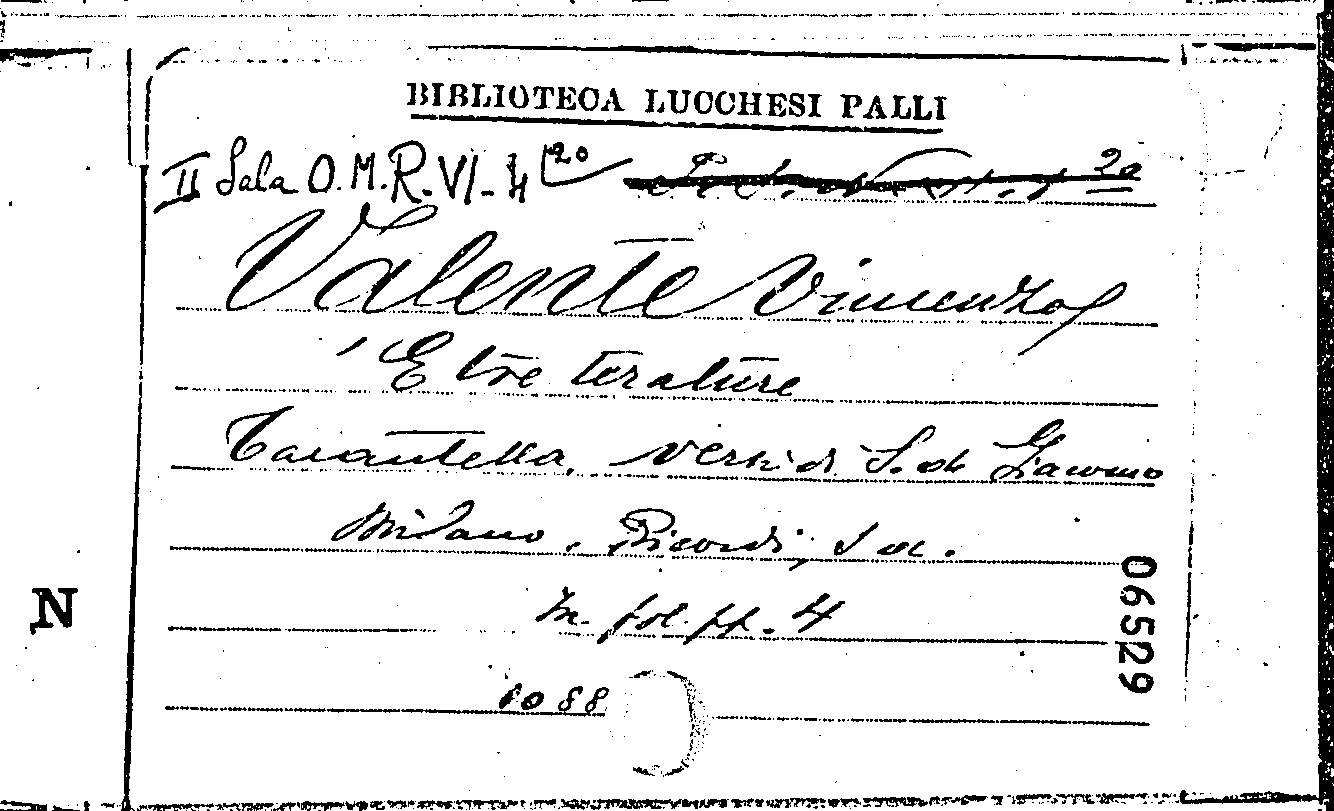 BIBLIOTECA LUCCHESI PALLI
II Sala O.M.R.VI-4 20
20
Valente Vincenzo
'E tre terature
Tarantella, versi di S. di Giacomo
Milano, Ricordi, s d.
In fol. pp. 4
N
06529
1088